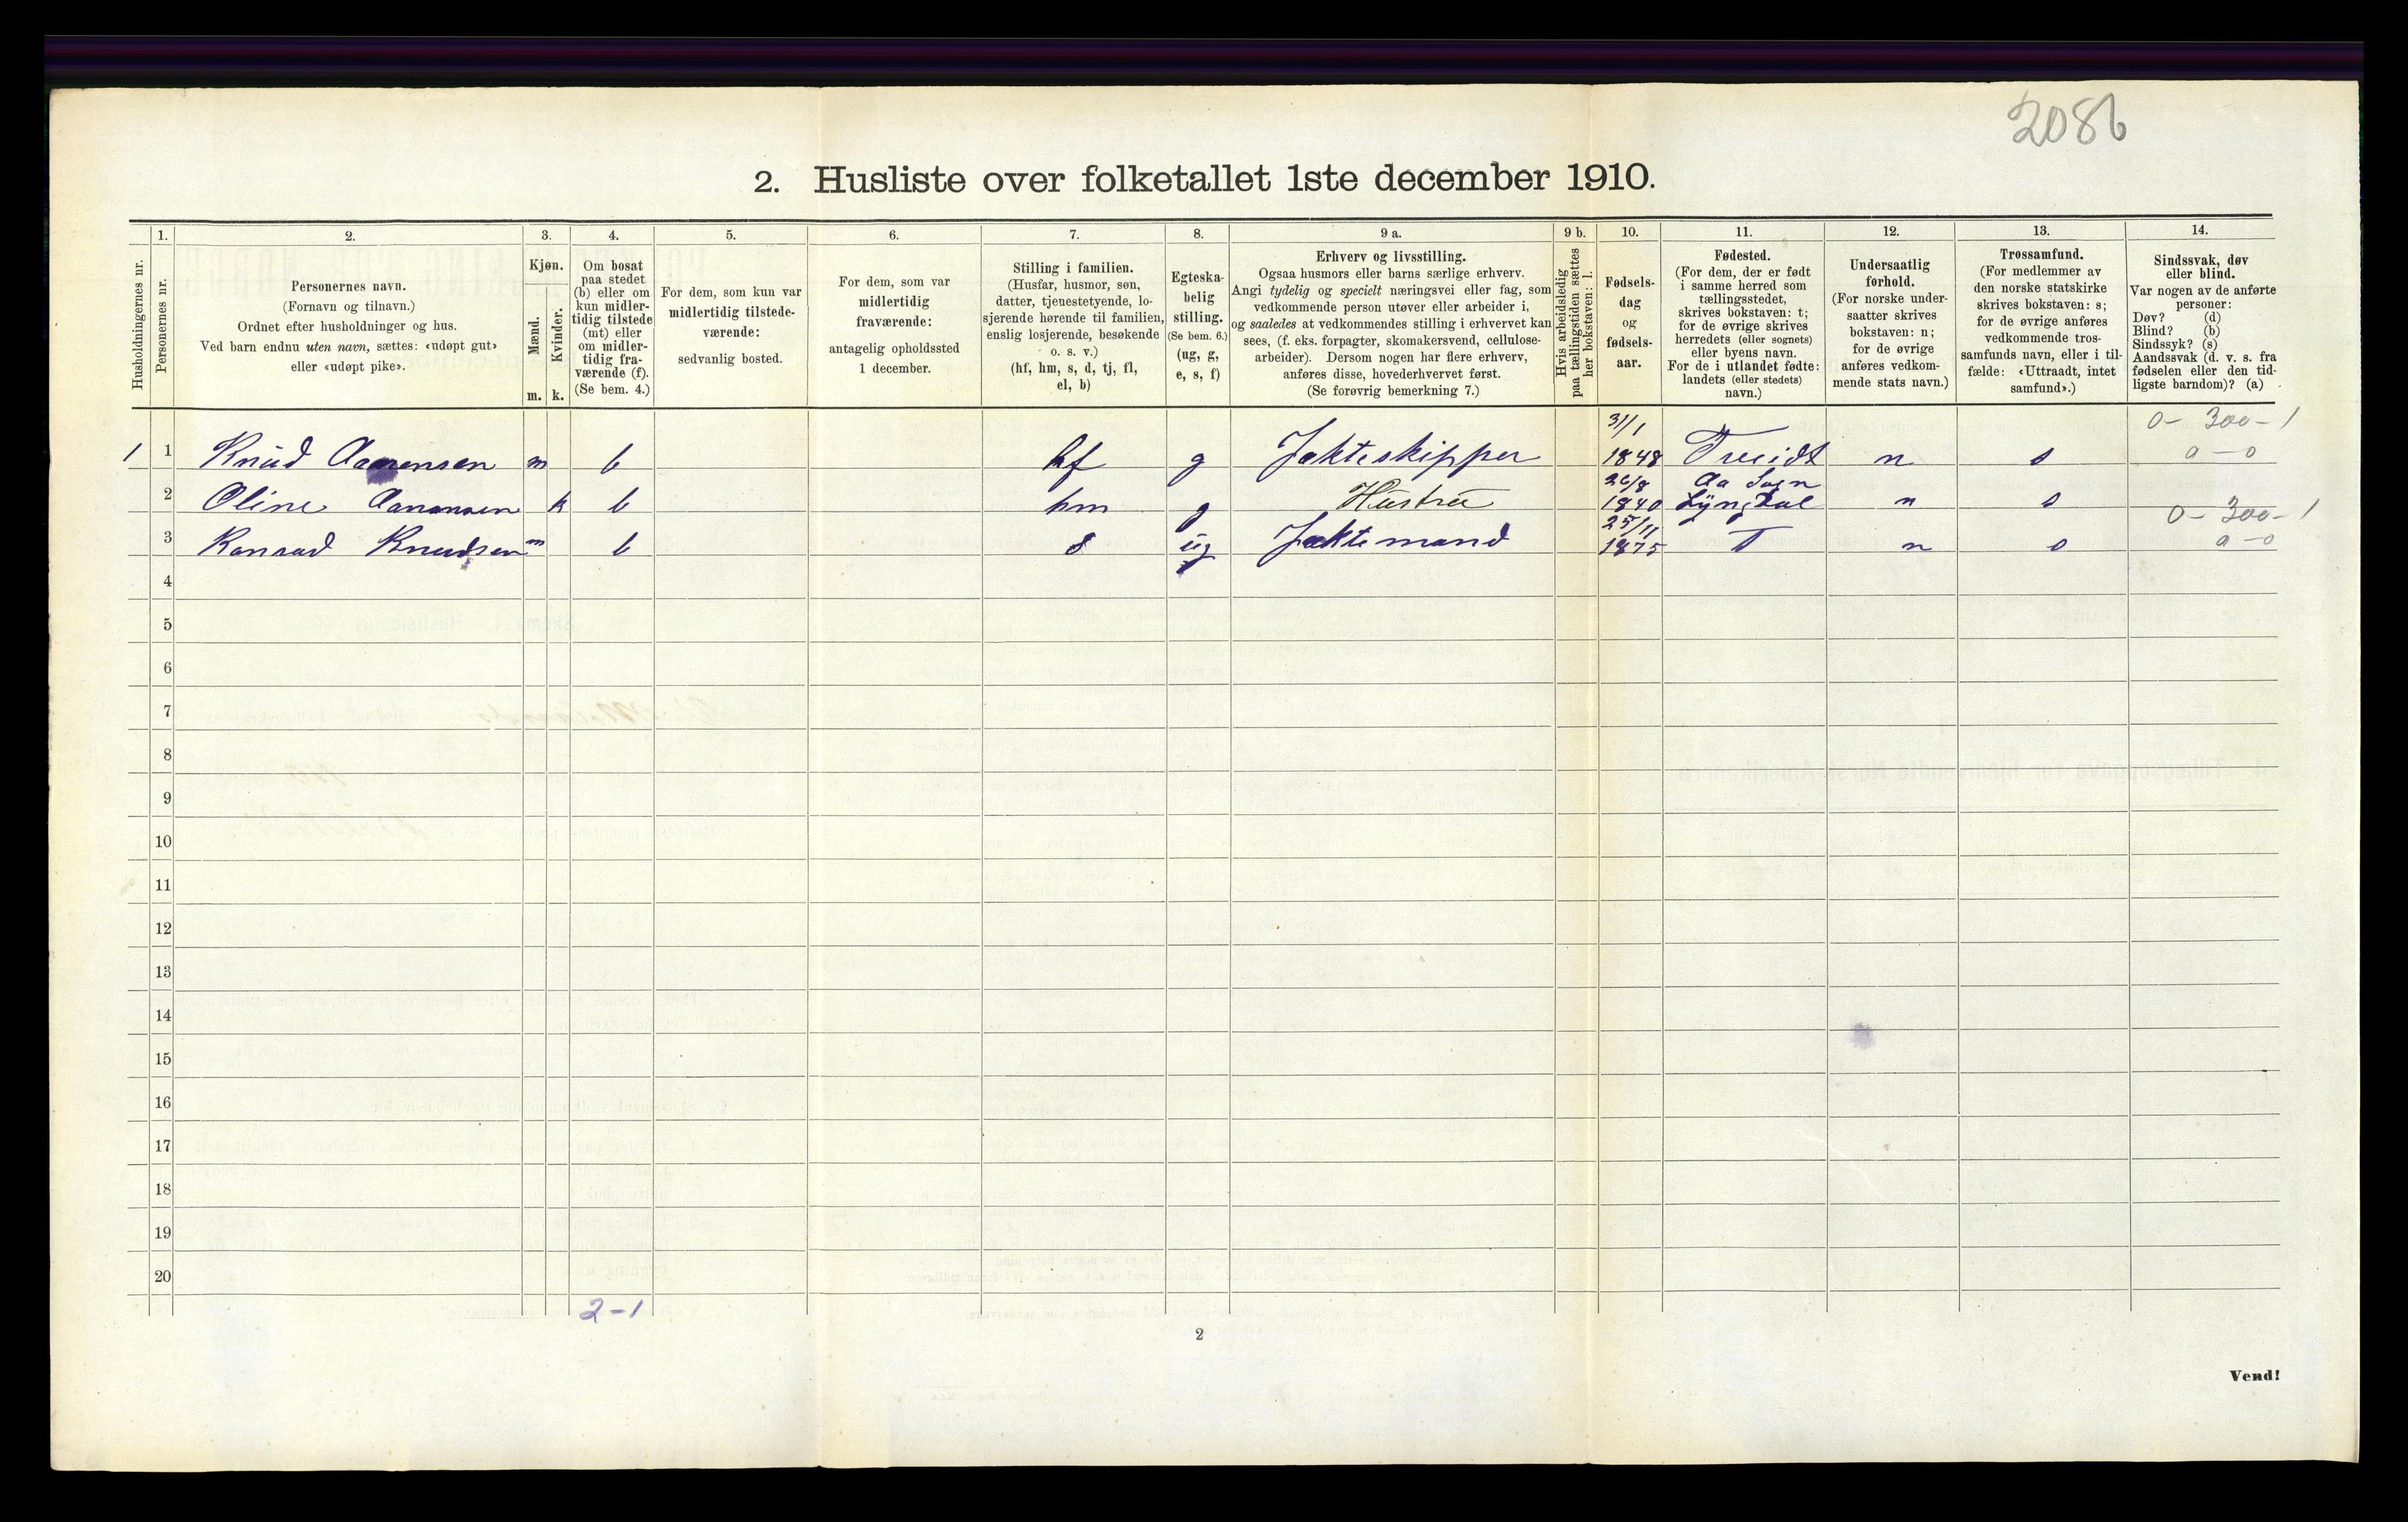 2086
2. Husliste over folketallet 1ste december 1910.
Husholdningernes nr.
1.
Personernes nr.
2.
Personernes navn.
(Fornavn og tilnavn.)
Ordnet efter husholdninger og hus.
Ved barn endnu uten navn, sættes: «udøpt gut»
eller «udøpt pike».
3.
Kjøn.
Mænd.
Kvinder.
m. k.
4.
Om bosat
paa stedet
(b) eller om
kun midler-
tidig tilstede
(mt) eller
om midler-
tidig fra-
værende (f).
(Se bem. 4.)
5.
For dem, som kun var
midlertidig tilstede-
værende:
sedvanlig bosted.
6.
For dem, som var
midlertidig
fraværende:
antagelig opholdssted
1 december.
7.
Stilling i familien.
(Husfar, husmor, søn,
datter, tjenestetyende, lo-
sjerende hørende til familien,
enslig losjerende, besøkende
o. s. v.)
(hf, hm, s, d, tj, fl,
el, b)
8.
Egteska-
belig
stilling.
(Se bem. 6.)
(ug, g,
e, s, f)
9 a.
Erhverv og livsstilling.
Ogsaa husmors eller barns særlige erhverv.
Angi tydelig og specielt næringsvei eller fag, som
vedkommende person utøver eller arbeider i,
og saaledes at vedkommendes stilling i erhvervet kan
sees, (f. eks. forpagter, skomakersvend, cellulose-
arbeider). Dersom nogen har flere erhverv,
anføres disse, hovederhvervet først.
(Se forøvrig bemerkning 7.)
9 b.
Hvis arbeidsledig
paa tællingstiden sættes
her bokstaven: l.
10.
Fødsels-
dag
og
fødsels-
aar.
11.
Fødested.
(For dem, der er født
i samme herred som
tællingsstedet,
skrives bokstaven: t;
for de øvrige skrives
herredets (eller sognets)
eller byens navn.
For de i utlandet fødte:
landets (eller stedets)
navn.)
12.
Undersaatlig
forhold.
(For norske under-
saatter skrives
bokstaven: n;
for de øvrige
anføres vedkom-
mende stats navn.)
13.
Trossamfund.
(For medlemmer av
den norske statskirke
skrives bokstaven: s;
for de øvrige anføres
vedkommende tros-
samfunds navn, eller i til-
fælde: «Uttraadt, intet
samfund».)
14.
Sindssvak, døv
eller blind.
Var nogen av de anførte
personer:
Døv? (d)
Blind? (b)
Sindssyk? (s)
Aandssvak (d. v. s. fra
fødselen eller den tid-
ligste barndom)? (a)
31/1 0-300-1
1 1 Knud Aanensen m b hf g Jakteskipper 1848 Tveidt n s a-0
26/8 Aa Sogn
2 Oline Aanensen k b hm g Hustru 1840 Lyngdal n s
25/11 0-300-1
3 Konrad Knudsen m b s ug Jaktemand 1875 T n s a-0
4
5
6
7
8
9
10
11
12
13
14
15
16
17
18
19
20
2-1
2
Vend!